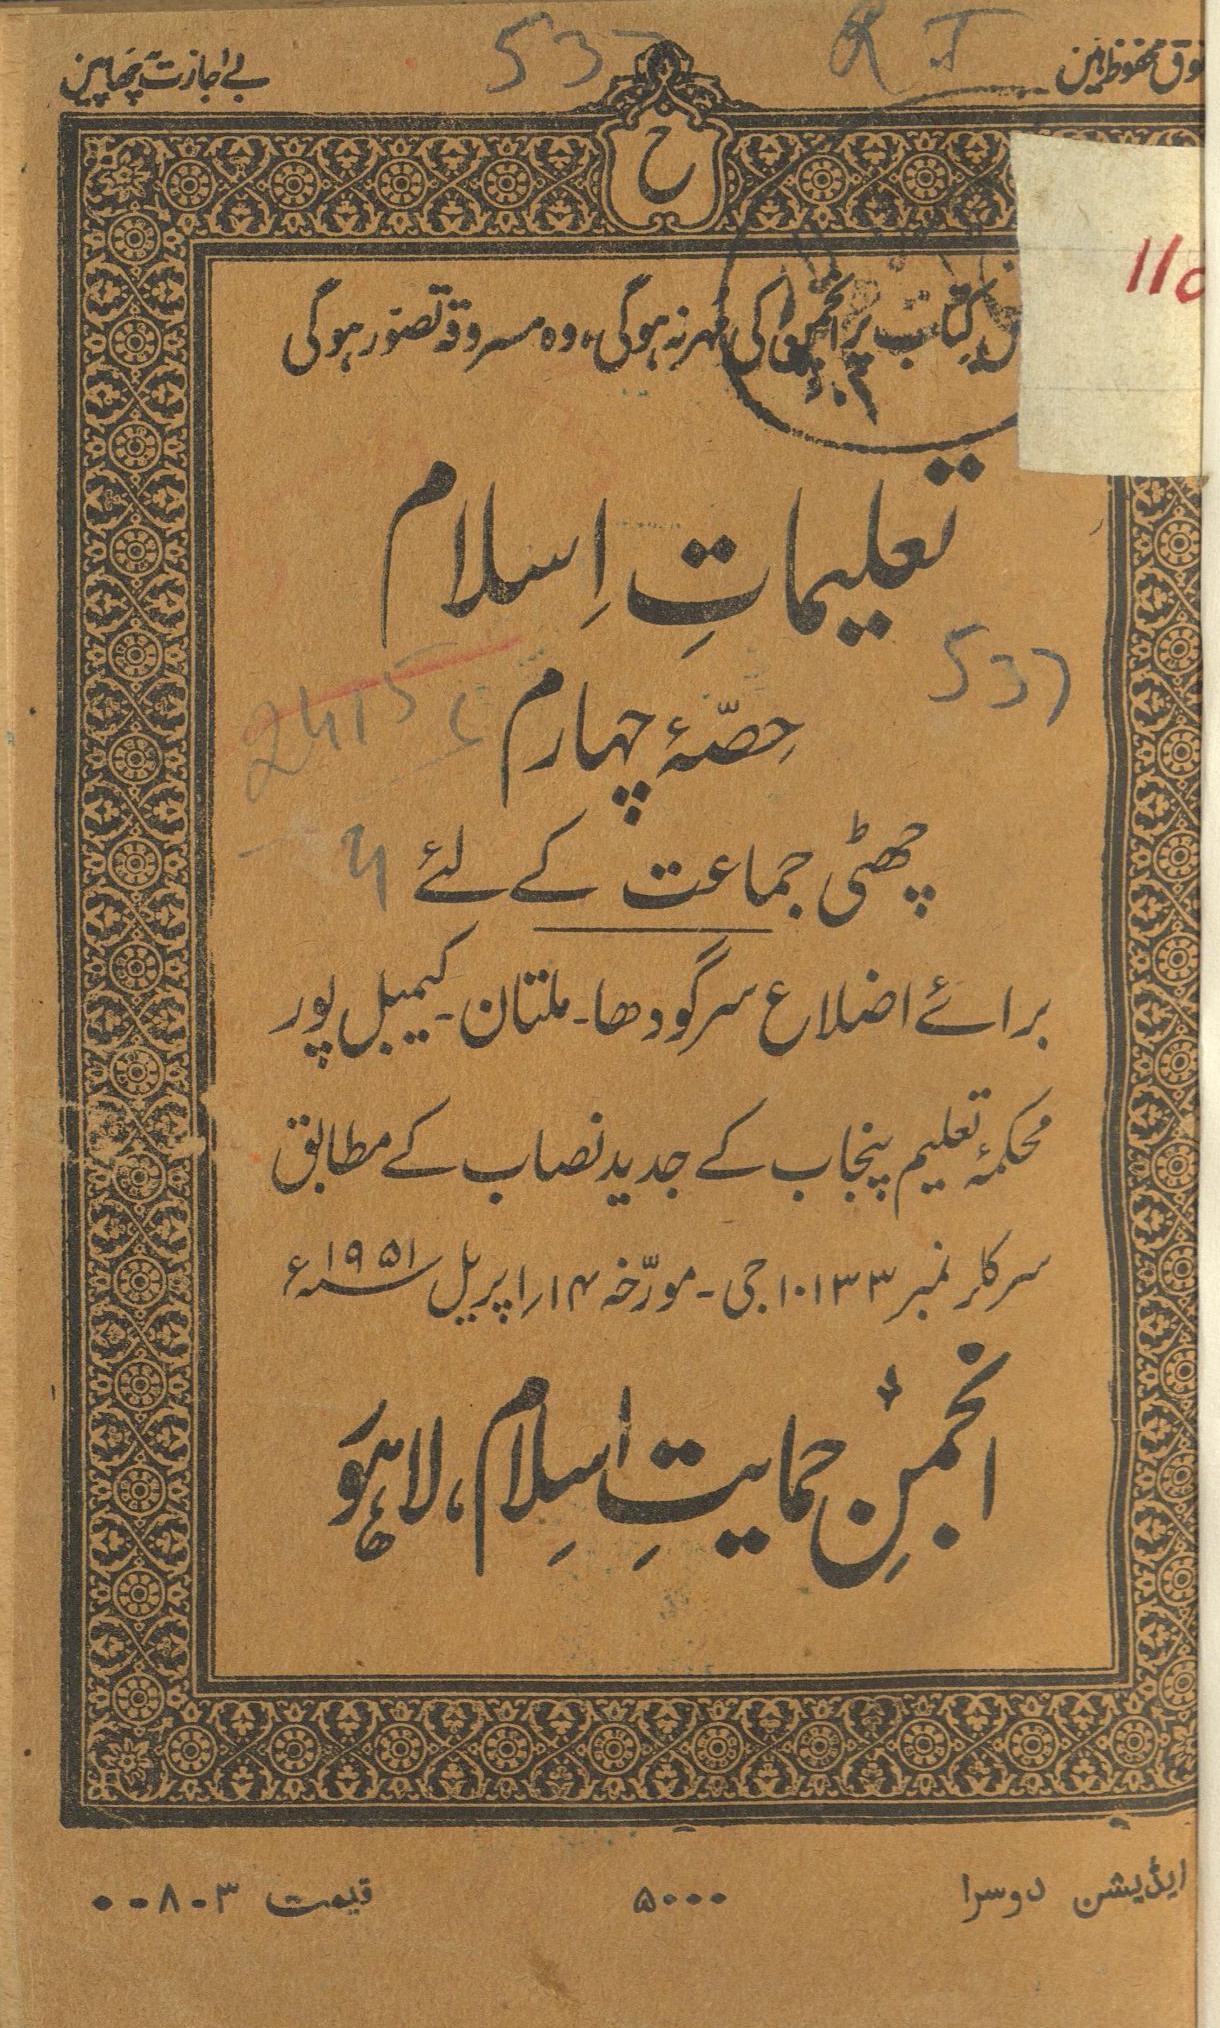 محفوظ ہیں
بے اجازت نہ چھاپیں
537
R I
ح
110
کتاب پر انجمن کی مہر نہ ہوگی، وہ مسروقہ تصوّر ہوگی
تعلیماتِ اِسلام
537
حِصّۂ چہارم
چھٹی جماعت کے لئے
برائے اضلاع سرگودھا۔ ملتان۔ کیمبل پور
محکمۂ تعلیم پنجاب کے جدید نصاب کے مطابق
سرکلر نمبر ۱۰۱۳۳ جی۔ مورّخہ ۱۴ اپریل ۱۹۵۱ء
انجمنِ حمایتِ اسلام، لاہور
ایڈیشن دوسرا
۵۰۰۰
قیمت ۳-۸-۰